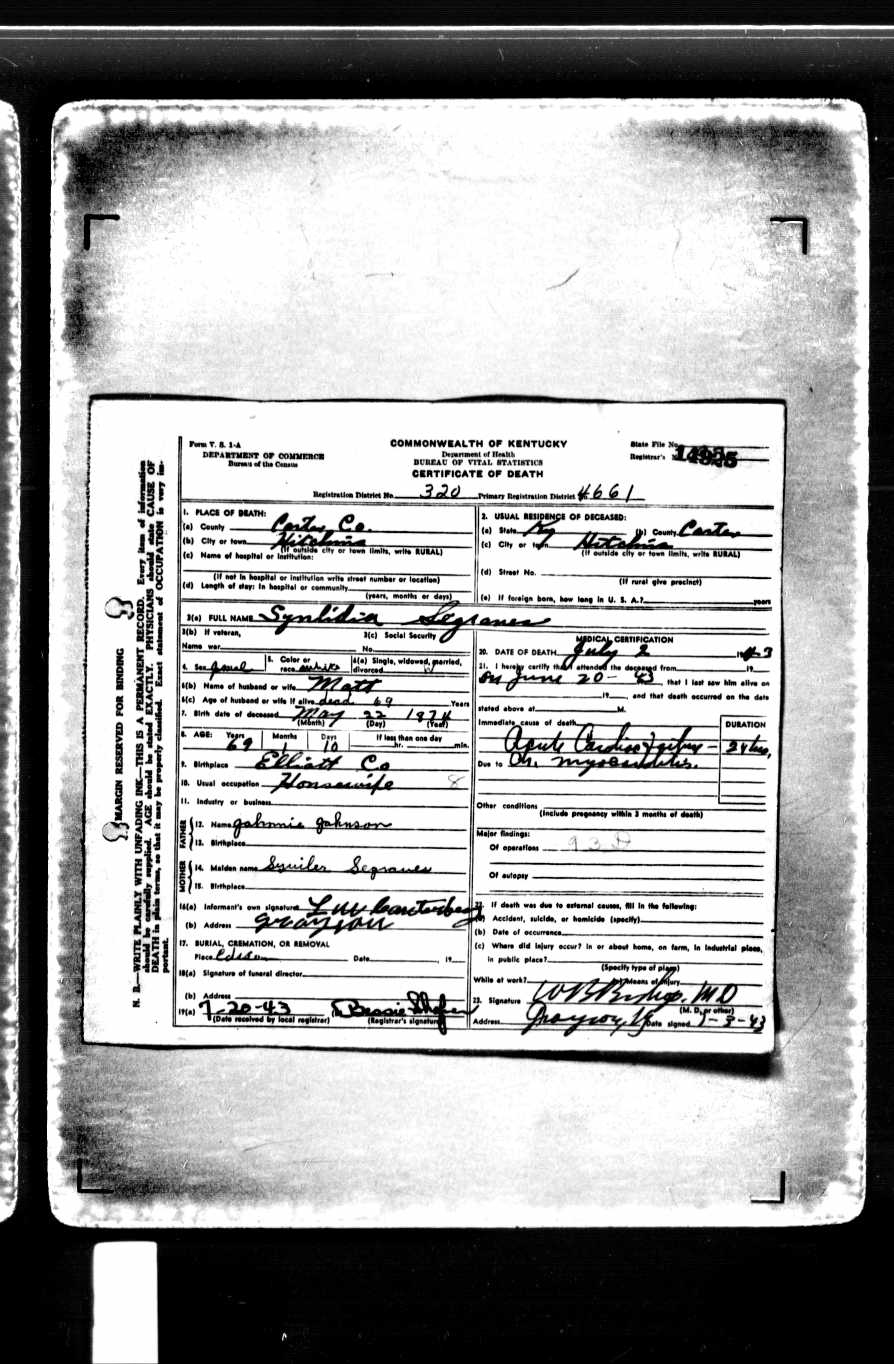 Form V. S. 1-A
DEPARTMENT OF COMMERCE
Bureau of the Census
COMMONWEALTH OF KENTUCKY
Department of Health
BUREAU OF VITAL STATISTICS
CERTIFICATE OF DEATH
State File No.
Registrar's 14925
Registration District No. 320 Primary Registration District 4661
MARGIN RESERVED FOR BINDING
N. B.—WRITE PLAINLY WITH UNFADING INK—THIS IS A PERMANENT RECORD. Every item of information
should be carefully supplied. AGE should be stated EXACTLY. PHYSICIANS should state CAUSE OF
DEATH in plain terms, so that it may be properly classified. Exact statement of OCCUPATION is very im-
portant.
1. PLACE OF DEATH:
(a) County Carter Co.
(b) City or town Hitchins
(If outside city or town limits, write RURAL)
(c) Name of hospital or institution:
(If not in hospital or institution write street number or location)
(d) Length of stay: In hospital or community
(years, months or days)
2. USUAL RESIDENCE OF DECEASED:
(a) State Ky (b) County Carter
(c) City or town Hitchins
(If outside city or town limits, write RURAL)
(d) Street No.
(If rural give precinct)
(e) If foreign born, how long in U. S. A.? years
3(a) FULL NAME Synlidia Segraves
3(b) If veteran,
Name war
3(c) Social Security
No.
4. Sex Femal 5. Color or race white 6(a) Single, widowed, married,
divorced
6(b) Name of husband or wife Matt
6(c) Age of husband or wife if alive dead 69 Years
7. Birth date of deceased May 22 1874
(Month) (Day) (Year)
8. AGE: Years Months Days If less than one day
69 1 10 hr. min.
9. Birthplace Elliott Co
10. Usual occupation Housewife 8
11. Industry or business
FATHER
12. Name Johnnie Johnson
13. Birthplace
MOTHER
14. Maiden name Segraves
15. Birthplace
16(a) Informant's own signature L M Canterberry
(b) Address Grayson
17. BURIAL, CREMATION, OR REMOVAL
Place Date 19
18(a) Signature of funeral director
(b) Address
19(a) 7-20-43 Bessie
(Date received by local registrar) (Registrar's signature)
MEDICAL CERTIFICATION
20. DATE OF DEATH July 2 1943
21. I hereby certify that I attended the deceased from 19
on June 20-43, that I last saw him alive on
19, and that death occurred on the date
stated above at M.
Immediate cause of death DURATION
Acute Cardiac failure — 24 hrs,
Due to Ch. myocarditis.
Other conditions
(Include pregnancy within 3 months of death)
Major findings:
Of operations 93D
Of autopsy
22. If death was due to external causes, fill in the following:
(a) Accident, suicide, or homicide (specify)
(b) Date of occurrence
(c) Where did injury occur? In or about home, on farm, in industrial place,
in public place?
(Specify type of place)
While at work? (e) Means of injury
23. Signature M D
(M. D. or other)
Address Grayson, Ky Date signed 7-3-43